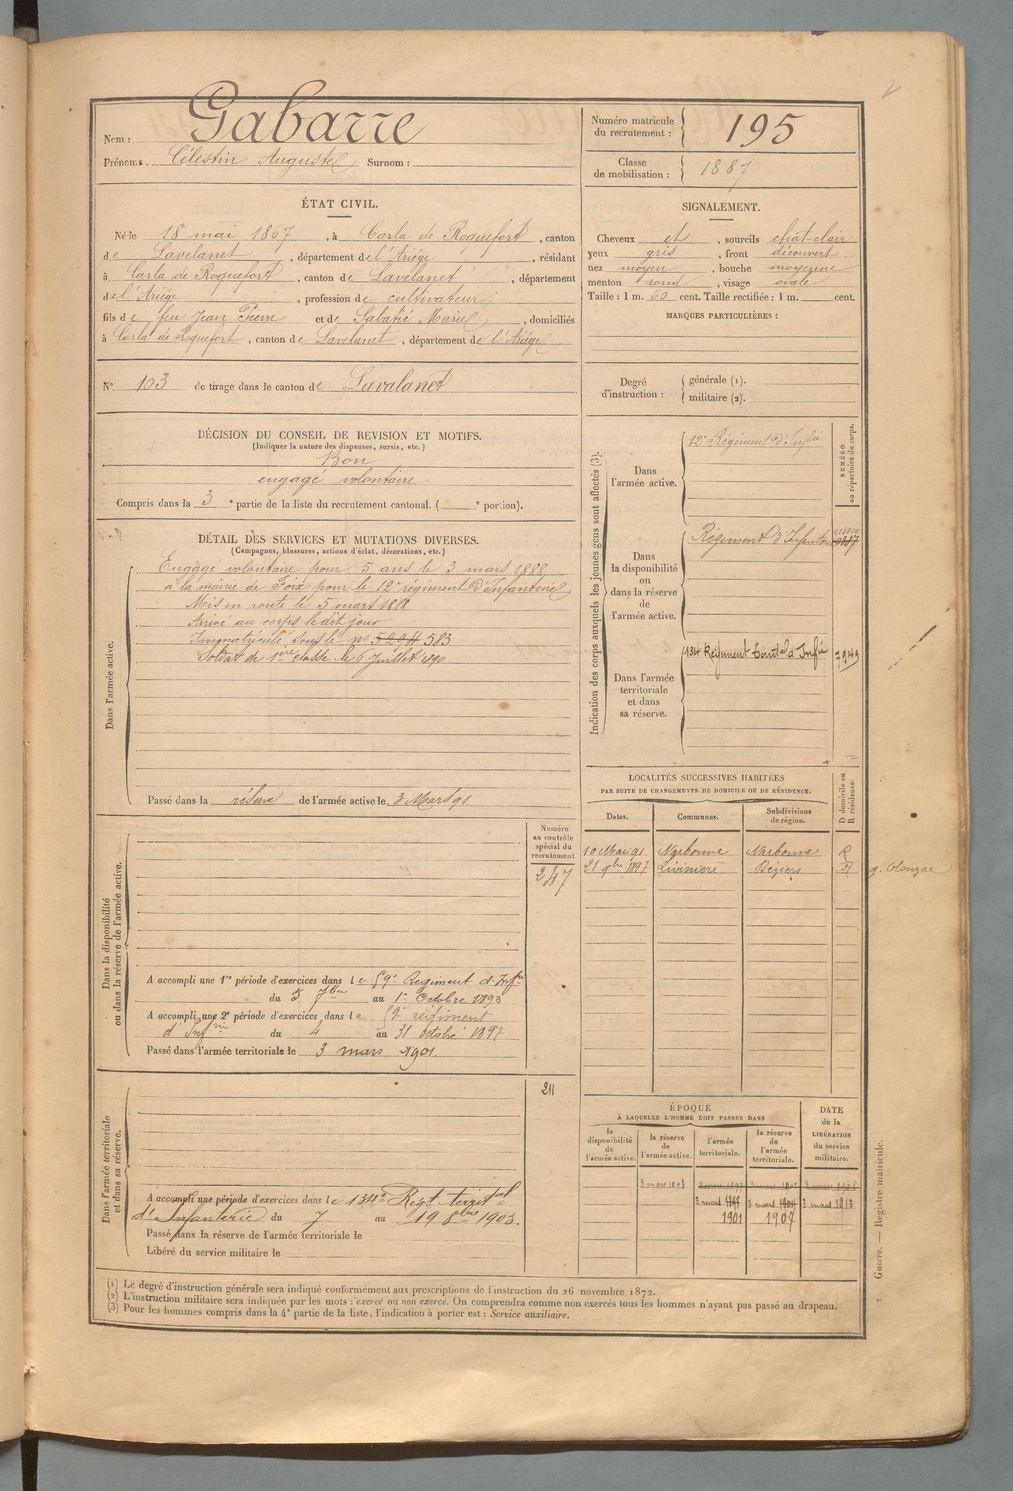 Nom : Gabarre
Prénoms. Célestin Auguste Surnom :
Numéro matricule du recrutement : 195
Classe de mobilisation : 1887
ÉTAT CIVIL.
Né le 18 mai 1867, à Carla de Roquefort, canton
de Lavelanet, département de l'Ariège, résidant
à Carla de Roquefort, canton de Lavelanet, département
de l'Ariège, profession de cultivateur
fils de feu Jean Pierre et de Sabatié Marie, domiciliés
à Carla de Roquefort, canton de Lavelanet, département de l'Ariège
SIGNALEMENT.
Cheveux et, sourcils chat-clair
yeux gris, front découvert
nez moyen, bouche moyenne
menton rond, visage ovale
Taille : 1 m. 60 cent. Taille rectifiée : 1 m. cent.
MARQUES PARTICULIÈRES :
N° 103 de tirage dans le canton de Lavalanet
Degré d'instruction : générale (1).
militaire (2).
DÉCISION DU CONSEIL DE REVISION ET MOTIFS.
(Indiquer la nature des dispenses, sursis, etc.)
Bon
engagé volontaire
Compris dans la 3e partie de la liste du recrutement cantonal. ( e portion).
DÉTAIL DES SERVICES ET MUTATIONS DIVERSES.
(Campagnes, blessures, actions d'éclat, décorations, etc.)
Dans l'armée active.
Engagé volontaire pour 5 ans le 3 mars 1888
à la mairie de Foix pour le 12e régiment d'Infanterie
Mis en route le 5 mars 1888
Arrivé au corps le dit jour
Immatriculé sous le n° 5204 583
Soldat de 1ère classe le 6 Juillet 1890
Passé dans la réserve de l'armée active le 3 Mars 91
Indication des corps auxquels les jeunes gens sont affectés (3).
NUMÉRO
au répertoire du corps.
Dans l'armée active.
12e Régiment d'Infie
Dans la disponibilité ou dans la réserve de l'armée active.
Régiment d'Infanterie
Dans l'armée territoriale et dans sa réserve.
134 Régiment territal d'Infie 7949
LOCALITÉS SUCCESSIVES HABITÉES
PAR SUITE DE CHANGEMENTS DE DOMICILE OU DE RÉSIDENCE.
Dates. Communes. Subdivisions de région. D domicile ou R résidence.
10 Mai 91 Narbonne Narbonne R
21 9bre 1897 Livinière Béziers R g. Olonzac
Dans la disponibilité
ou dans la réserve de l'armée active.
Numéro
au contrôle
spécial du
recrutement
247
A accompli une 1re période d'exercices dans le 59e Régiment d'Infie
du 5 7bre au 1er Octobre 1893
A accompli une 2e période d'exercices dans le régiment
d'Infrie du 4 au 31 octobre 1897
Passé dans l'armée territoriale le 3 mars 1901.
Dans l'armée territoriale
et dans sa réserve.
211
A accompli une période d'exercices dans le 134e Régt territal
d'Infanterie du 7 au 19 8bre 1903.
Passé dans la réserve de l'armée territoriale le
Libéré du service militaire le
ÉPOQUE
À LAQUELLE L'HOMME DOIT PASSER DANS
la disponibilité de l'armée active.
la réserve de l'armée active.
l'armée territoriale.
la réserve de l'armée territoriale.
DATE
de la
LIBÉRATION
du service
militaire.
3 mars 1893
3 mars 3 mars 3 mars 1913
1901 1907
(1) Le degré d'instruction générale sera indiqué conformément aux prescriptions de l'instruction du 26 novembre 1872.
(2) L'instruction militaire sera indiquée par les mots : exercé ou non exercé. On comprendra comme non exercés tous les hommes n'ayant pas passé au drapeau.
(3) Pour les hommes compris dans la 4e partie de la liste, l'indication à porter est : Service auxiliaire.
Guerre. — Registre matricule.